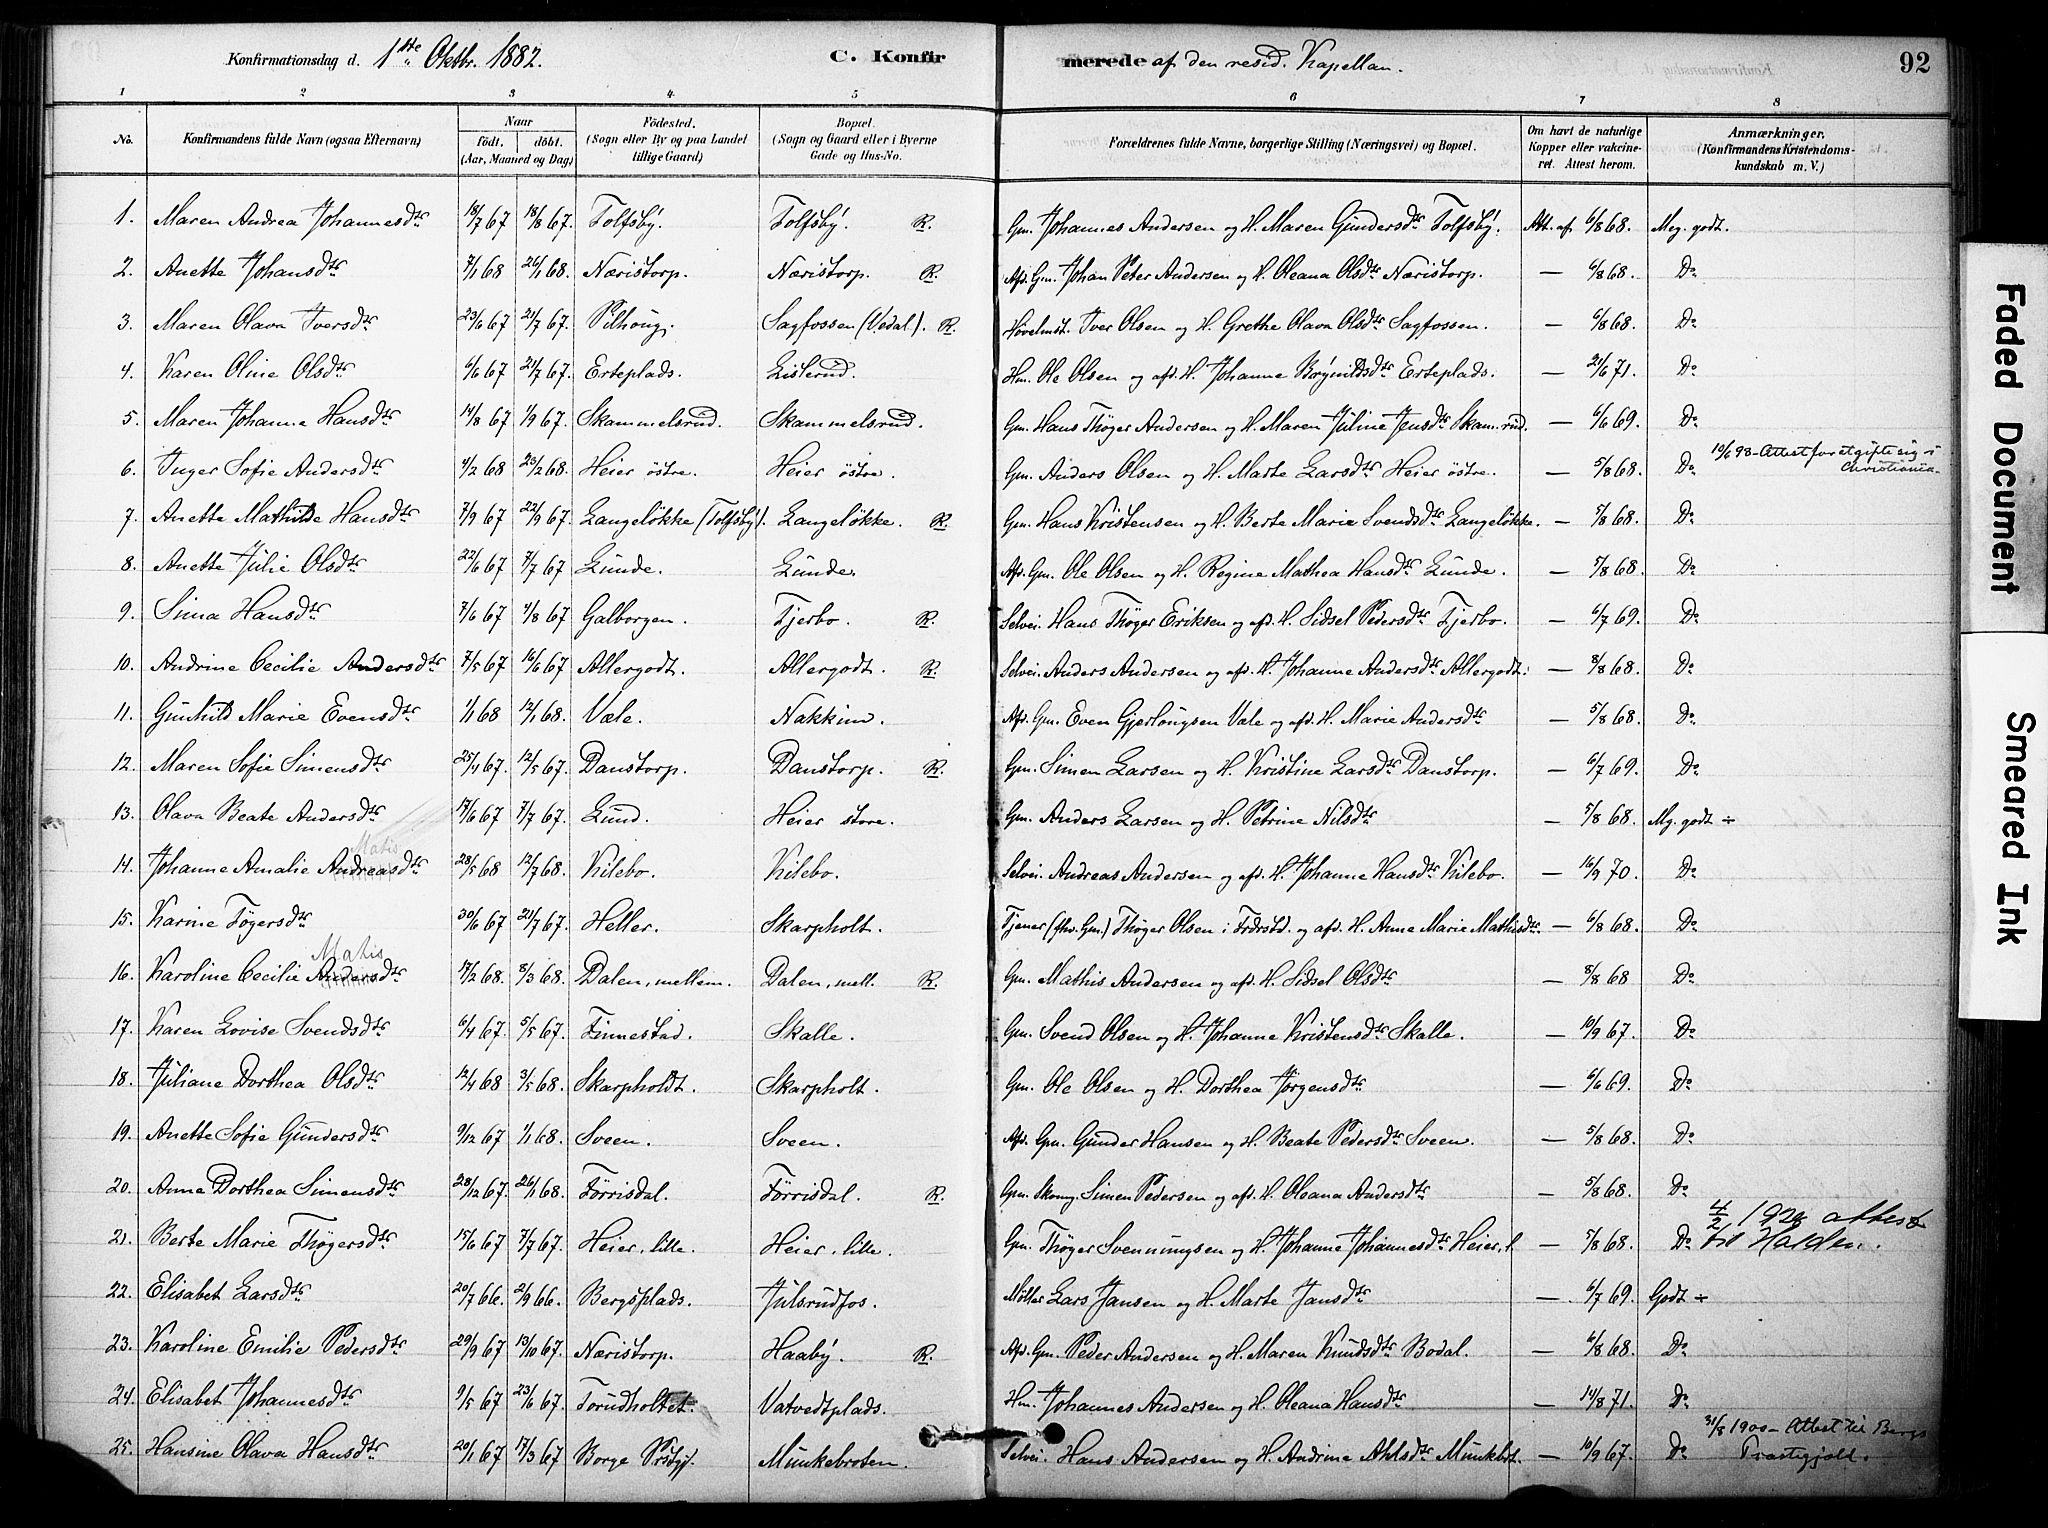 Konfirmationsdag d. 1ste Oktbr. 1882. C. Konfirmerede af den resid. Kapellan. 92
1 2 3 4 5 6 7 8
No. Konfirmandens fulde Navn (ogsaa Efternavn) Naar födt. döbt. (Aar, Maaned og Dag) Födested. (Sogn eller By og paa Landet tillige Gaard) Bopæl. (Sogn og Gaard eller i Byerne Gade og Hus-No. Forældrenes fulde Navne, borgerlige Stilling (Næringsvei) og Bopæl. Om havt de naturlige Kopper eller vakcineret. Attest herom. Anmærkninger. (Konfirmandens Kristendomskundskab m. V.)
1. Maren Andrea Johannesdtr 18/7 67 18/8 67. Tolfsby. Tolfsby. R. Gm. Johannes Andersen og H. Maren Gundersdtr Tolfsby. Att. af 6/8 68. Meg. godt.
2. Anette Johansdtr 7/1 68 26/1 68. Næristorp. Næristorp. R. Afd. Gm. Johan Peter Andersen og H. Oleana Olsdtr Næristorp. — 6/8 68. Do
3. Maren Olava Iversdtr 23/6 67 21/7 67. Pilhoug. Sagfossen (Vedal). R. Høvelmst. Iver Olsen og H. Grethe Olava Olsdtr Sagfossen. — 6/8 68. Do
4. Karen Oline Olsdtr 6/6 67 21/7 67. Erteplads. Lislerud. Hm. Ole Olsen og afd. H. Johanne Brynildsdtr Erteplads. — 21/6 71. Do
5. Maren Johanne Hansdtr 14/8 67 1/9 67. Skammelsrud. Skammelsrud. Gm. Hans Thøger Andersen og H. Maren Juline Jensdtr Skam.rud. — 6/6 69. Do
6. Inger Sofie Andersdtr 4/2 68 23/2 68. Heier östre. Heier östre. Gm. Anders Olsen og H. Marte Larsdtr Heier östre. — 5/8 68. Do 10/6 98 - Attest for at gifte sig i Christiania.
7. Anette Mathilde Hansdtr 7/9 67 22/9 67. Langeløkke (Tolfsby). Langeløkke. R. Gm. Hans Kristensen og H. Berte Marie Svendsdtr Langeløkke. — 5/8 68. Do
8. Anette Julie Olsdtr 22/6 67 7/7 67. Lunde. Lunde. Afd. Gm. Ole Olsen og H. Regine Mathea Hansdtr Lunde. — 5/8 68. Do
9. Sina Hansdtr 7/6 67 4/8 67. Galborgen. Tjerbo. R. Selvei. Hans Thøger Eriksen og afd. H. Sidsel Pedersdtr Tjerbo. — 6/7 69. Do
10. Andrine Cecilie Andersdtr 7/5 67 16/6 67. Allergodt. Allergodt. R. Selvei. Anders Andersen og afd. H. Johanne Andersdtr Allergodt. — 8/8 68. Do
11. Gunhild Marie Evensdtr 1/1 68 12/1 68. Væle. Nakkim. Afd. Gm. Even Gjerlougsen Væle og afd. H. Marie Andersdtr — 5/8 68. Do
12. Maren Sofie Simensdtr 25/4 67. 12/5 67. Danstorp. Danstorp. R. Gm. Simen Larsen og H. Kristine Larsdtr Danstorp. — 6/7 69. Do
13. Olava Beate Andersdtr 17/6 67 7/7 67. Lund. Heier store. Gm. Anders Larsen og H. Petrine Nilsdtr — 5/8 68. Mg. godt ÷
Matis
14. Johanne Amalie Andreasdtr 28/5 68 12/7 68. Kilebo. Kilebo. Selvei. Andreas Andersen og afd. H. Johanne Hansdtr Kilebo. — 16/9 70. Do
15. Karine Tøgersdtr 30/6 67 21/7 67. Heller. Skarpholt. Tjener (fhv. Gm.) Thøger Olsen i Frdrstd. og afd. H. Anne Marie Mathisdtr. — 6/8 68. Do
Matis
16. Karoline Cecilie Andersdtr 17/2 68. 8/3 68. Dalen, mellem. Dalen, mell. R. Gm. Mathis Andersen og afd. H. Sidsel Olsdtr — 8/8 68 Do
17. Karen Lovise Svendsdtr 6/4 67. 5/5 67. Finnestad. Skalle. Gm. Svend Olsen og H. Johanne Kristensdtr Skalle. — 10/9 67. Do
18. Juliane Dorthea Olsdtr 12/4 68 3/5 68. Skarpholdt. Skarpholt. Gm. Ole Olsen og H. Dorthea Jørgensdtr — 6/6 69. Do
19. Anette Sofie Gundersdtr 9/12 67 1/1 68. Sveen. Sveen. Afd. Gm. Gunder Hansen og H. Beate Pedersdtr Sveen. — 5/8 68. Do
20. Anne Dorthea Simensdtr 28/12 67. 26/1 68. Förrisdal. Förrisdal. R. Gm. Skomg. Simen Pedersen og afd. H. Oleana Andersdtr — 5/8 68. Do
21. Berte Marie Thøgersdtr 15/6 67 7/7 67. Heier, lille. Heier, lille. Gm. Thøger Svenningsen og H. Johanne Johannesdtr Heier, l — 5/8 68. Do 4/2 attest til Halden.
22. Elisabet Larsdtr 20/7 66. 2/9 66. Bergsplads. Julsrudfos. Møller Lars Jansen og H. Marte Jansdtr — 6/7 69. Godt ÷
23. Karoline Emilie Pedersdtr 29/9 67 13/10 67. Næristorp. Haaby. R. Afd. Gm. Peder Andersen og H. Maren Knudsdtr Bodal. — 6/8 68. Do
24. Elisabet Johannesdtr 9/5 67 23/6 67 Torudholtet. Vatvedtplads. Hm. Johannes Andersen og H. Oleana Hansdtr — 14/8 71. Do
25. Hansine Olava Hansdtr 20/1 67 17/3 67 Borge Prstgj. Munkebroten. Selvei. Hans Andersen og H. Andrine Ahlsdtr Munkebt. — 10/9 67. Do 31/8 1900 - Attest til Bergs Præstegjeld.
Faded Document
Smeared Ink